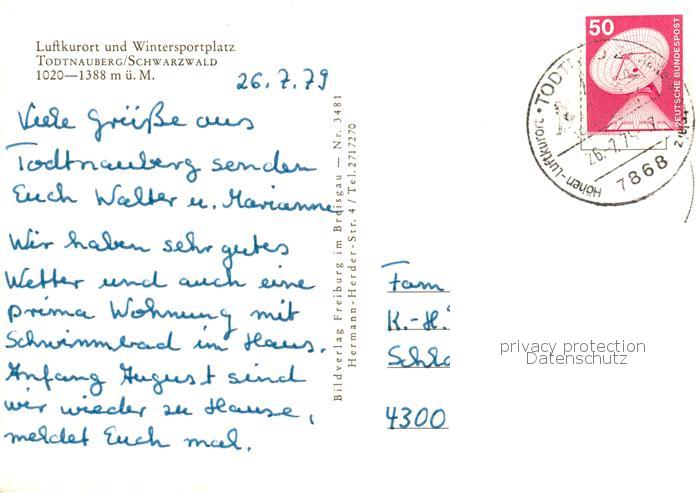 Luftkurort und Wintersportplatz
TODTNAUBERG/SCHWARZWALD
1020—1388 m ü. M.
26.7.79
Viele Grüße aus
Todtnauberg senden
Euch Walter u. Marianne
Wir haben sehr gutes
Wetter und auch eine
prima Wohnung mit
Schwimmbad im Haus.
Anfang August sind
wir wieder zu Hause,
meldet Euch mal.
Bildverlag Freiburg im Breisgau — Nr. 3481
Hermann-Herder-Str. 4 / Tel. 2717270
50
DEUTSCHE BUNDESPOST
Höhen-Luftkurort • TODT
26.-7.79
7868
Fam
K.-H.
Schlo
4300
privacy protection
Datenschutz